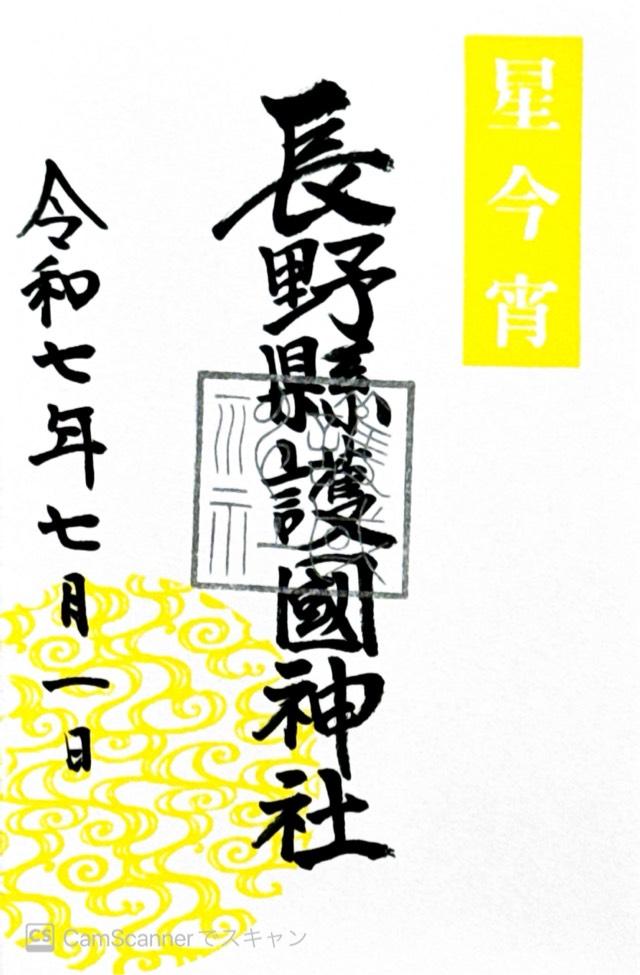 星今宵
長野縣護國神社
令和七年七月一日
CS CamScannerでスキャン